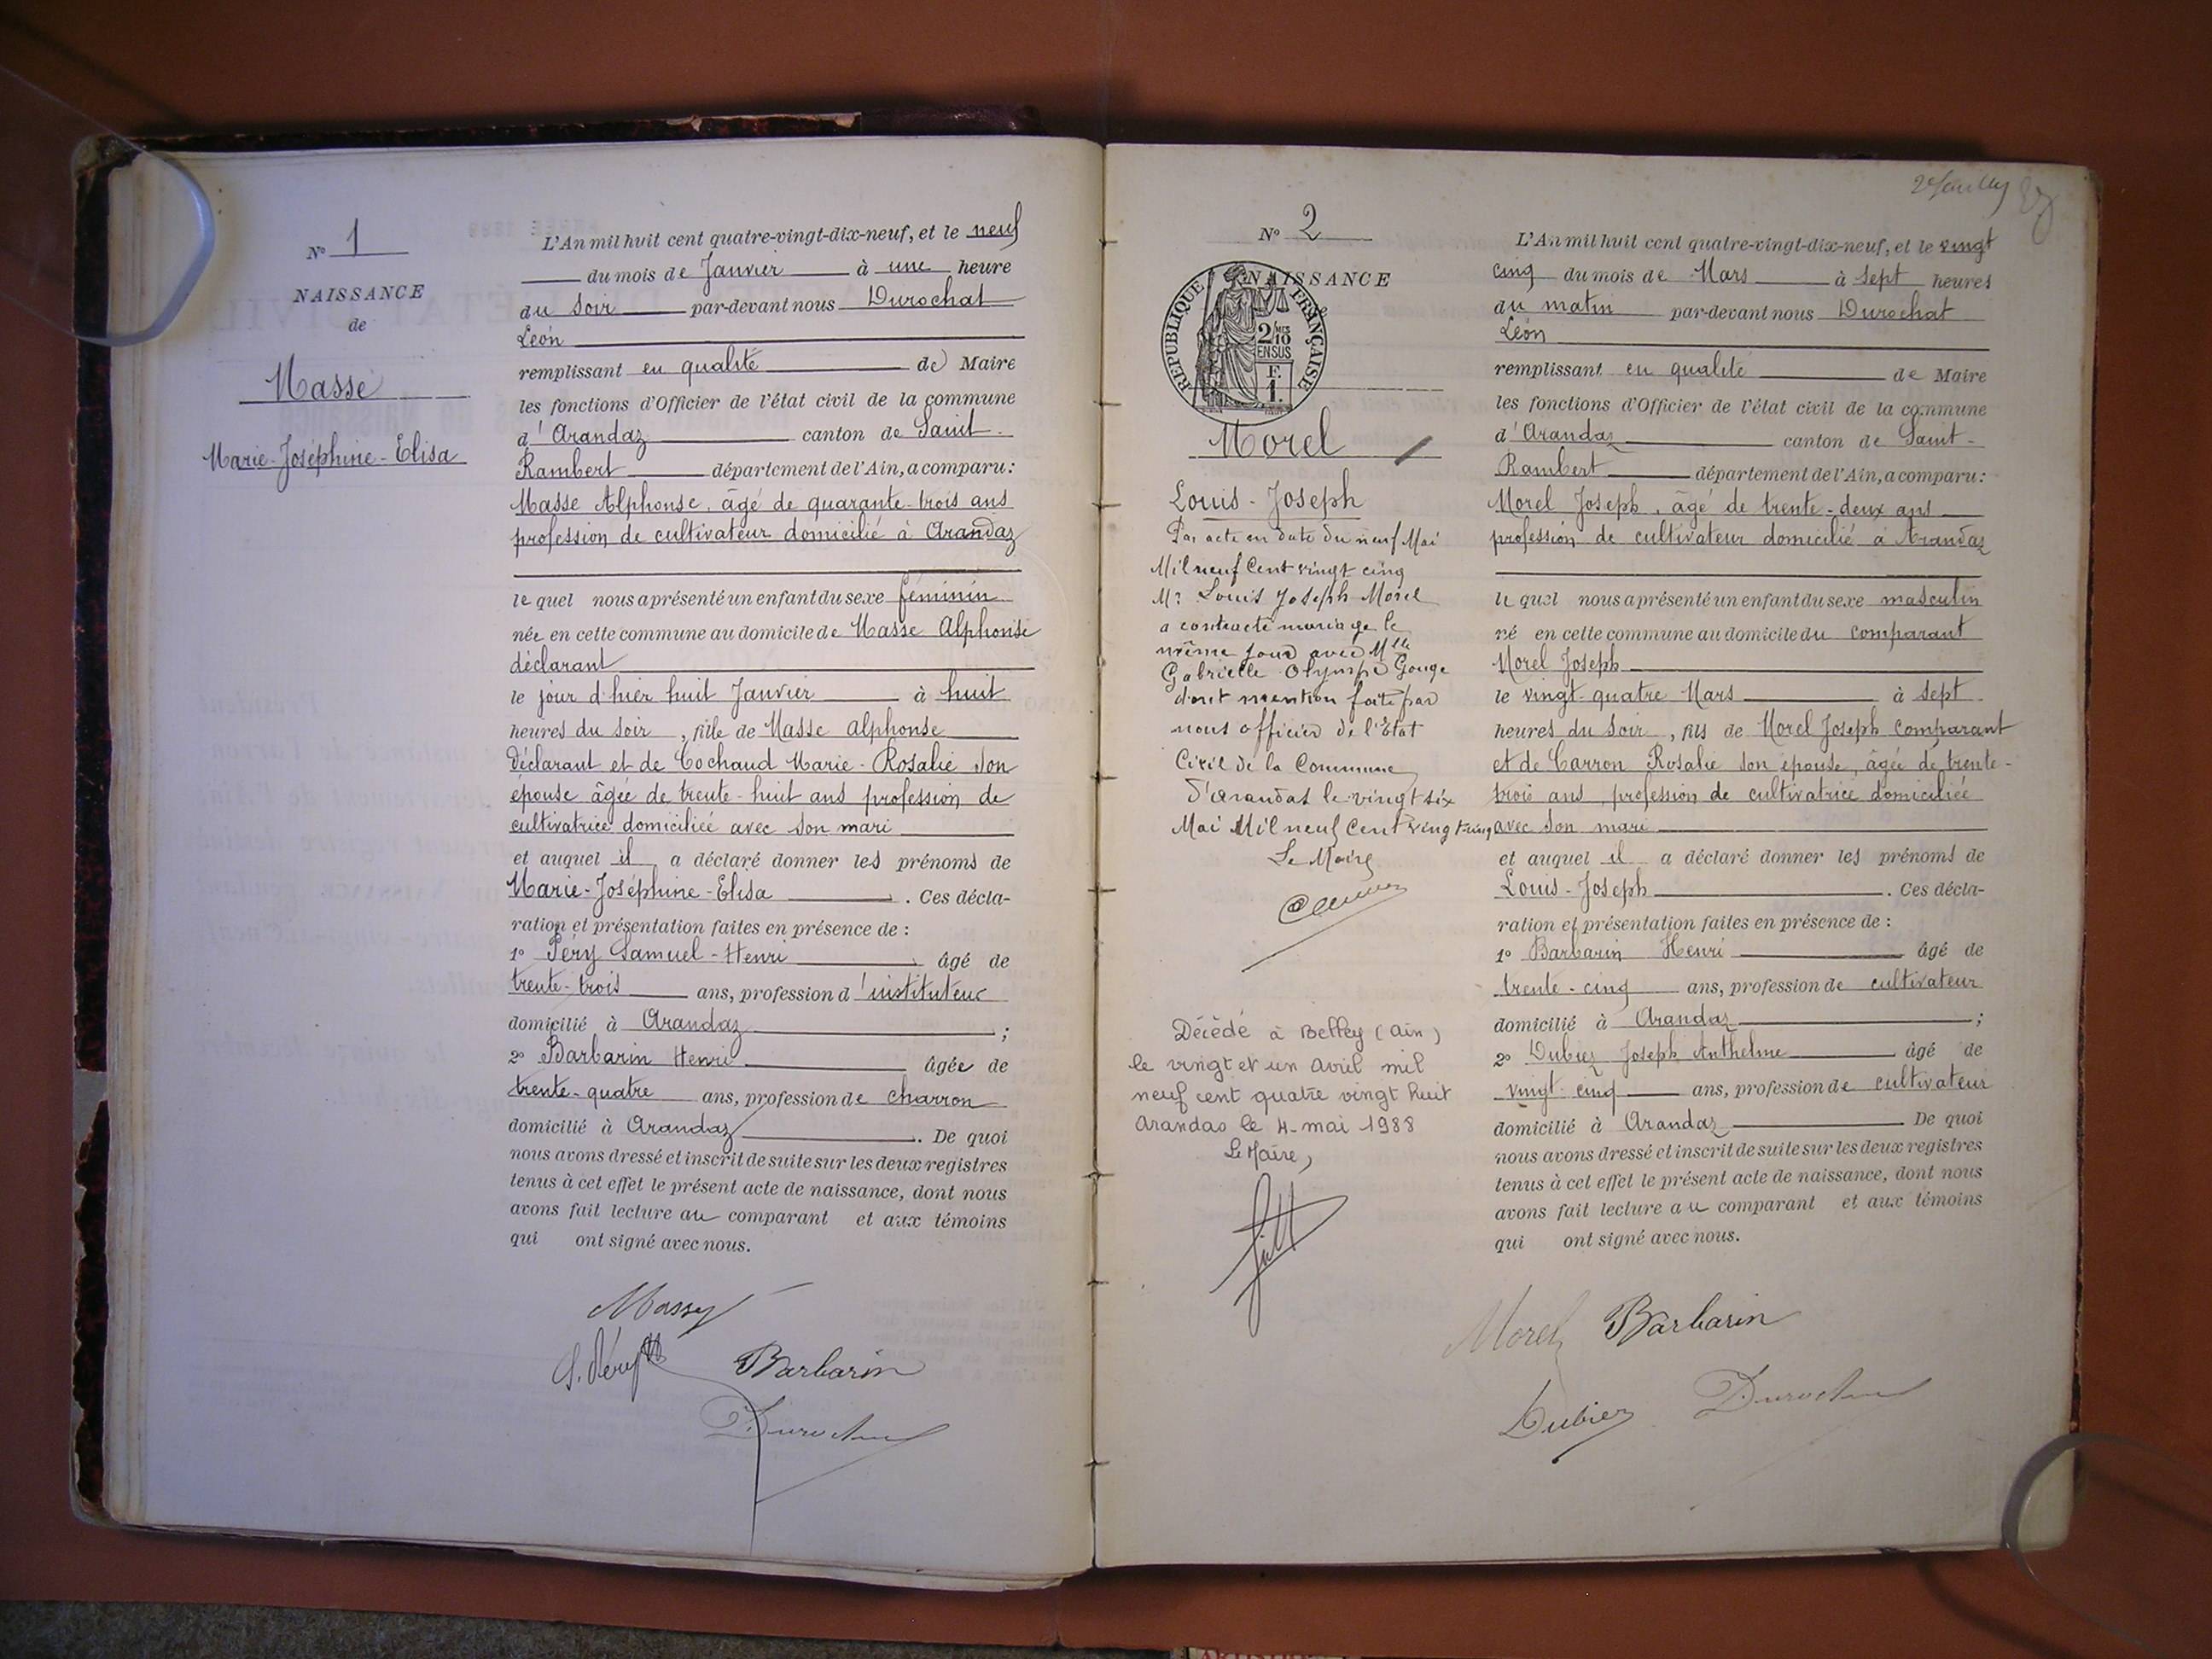 N° 1
NAISSANCE
de
Masse
Marie-Joséphine-Elisa
L'An mil huit cent quatre-vingt-dix-neuf, et le neuf
du mois de Janvier à une heure
du soir par-devant nous Durochat
Léon
remplissant en qualité de Maire
les fonctions d'Officier de l'état civil de la commune
d'Arandaz canton de Saint-
Rambert département de l'Ain, a comparu:
Masse Alphonse, âgé de quarante-trois ans
profession de cultivateur domicilié à Arandaz
lequel nous a présenté un enfant du sexe féminin
née en cette commune au domicile de Masse Alphonse
déclarant
le jour d'hier huit Janvier à huit
heures du soir, fille de Masse Alphonse
déclarant et de Cochaud Marie-Rosalie son
épouse âgée de trente-huit ans profession de
cultivatrice domiciliée avec son mari
et auquel il a déclaré donner les prénoms de
Marie-Joséphine-Elisa. Ces décla-
ration et présentation faites en présence de :
1° Péry Samuel-Henri âgé de
trente-trois ans, profession d'instituteur
domicilié à Arandaz ;
2° Barbarin Henri âgée de
trente-quatre ans, profession de charron
domicilié à Arandaz. De quoi
nous avons dressé et inscrit de suite sur les deux registres
tenus à cet effet le présent acte de naissance, dont nous
avons fait lecture au comparant et aux témoins
qui ont signé avec nous.
Massy
S. Péry
Barbarin
Durochat
N° 2
NAISSANCE
RÉPUBLIQUE FRANÇAISE
2/10MES
EN SUS
F.
1.
Morel
Louis-Joseph
Par acte en date du neuf Mai
Mil neuf Cent vingt cinq
Mr Louis Joseph Morel
a contracté mariage le
même jour avec Mlle
Gabrielle Olympe Gouge
dont mention faite par
nous officier de l'Etat
Civil de la Commune
d'arandas le vingt six
Mai Mil neuf Cent vingt cinq
Le Maire
Décédé à Belley (Ain)
le vingt et un Avril mil
neuf cent quatre vingt huit
Arandas le 4 mai 1988
Le Maire,
L'An mil huit cent quatre-vingt-dix-neuf, et le vingt
cinq du mois de Mars à sept heures
du matin par-devant nous Durochat
Léon
remplissant en qualité de Maire
les fonctions d'Officier de l'état civil de la commune
d'Arandaz canton de Saint-
Rambert département de l'Ain, a comparu:
Morel Joseph, âgé de trente-deux ans
profession de cultivateur domicilié à Arandaz
lequel nous a présenté un enfant du sexe masculin
né en cette commune au domicile du comparant
Morel Joseph
le vingt quatre Mars à sept
heures du soir, fils de Morel Joseph comparant
et de Carron Rosalie son épouse, âgée de trente-
trois ans, profession de cultivatrice domiciliée
avec son mari
et auquel il a déclaré donner les prénoms de
Louis-Joseph. Ces décla-
ration et présentation faites en présence de :
1° Barbarin Henri âgé de
trente-cinq ans, profession de cultivateur
domicilié à Arandaz ;
2° Dubiez Joseph Anthelme âgé de
vingt-cinq ans, profession de cultivateur
domicilié à Arandaz De quoi
nous avons dressé et inscrit de suite sur les deux registres
tenus à cet effet le présent acte de naissance, dont nous
avons fait lecture au comparant et aux témoins
qui ont signé avec nous.
Morel Barbarin
Dubiez Durochat